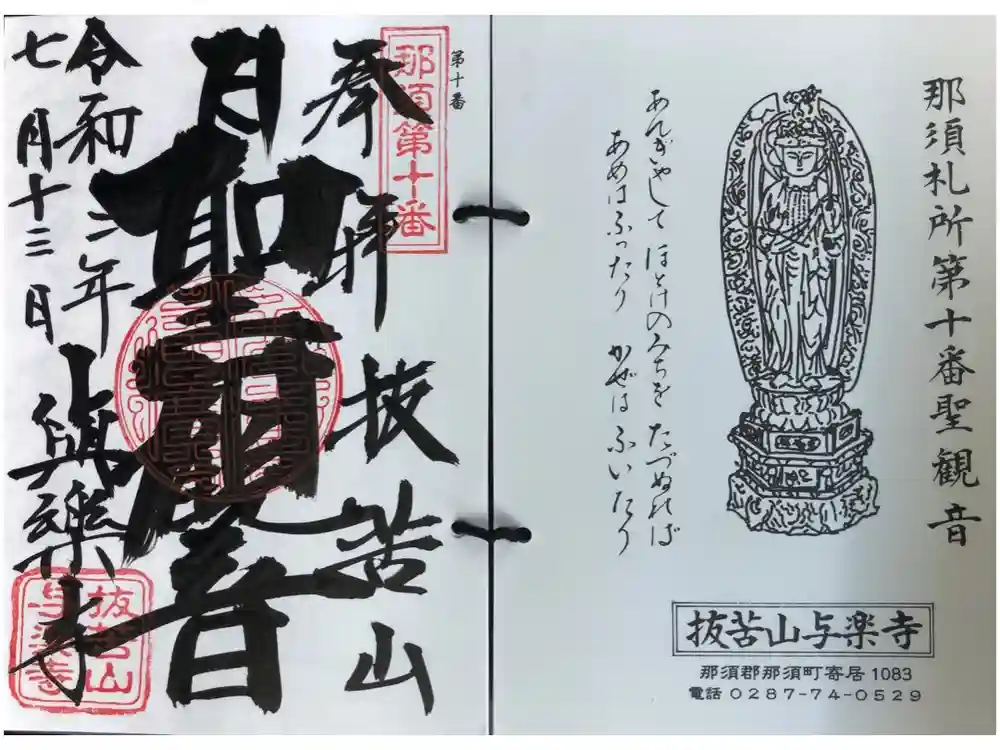 那須札所第十番聖観音
あんぎゃして ほとけのみちを たづぬれば
あめはふったり かぜはふいたり
抜苦山与楽寺
那須郡那須町寄居1083
電話 0287-74-0529
第十番
那須第十番
奉拝 抜苦山
聖観音
令和三年
七月十三日
與樂寺
抜苦山
与楽寺